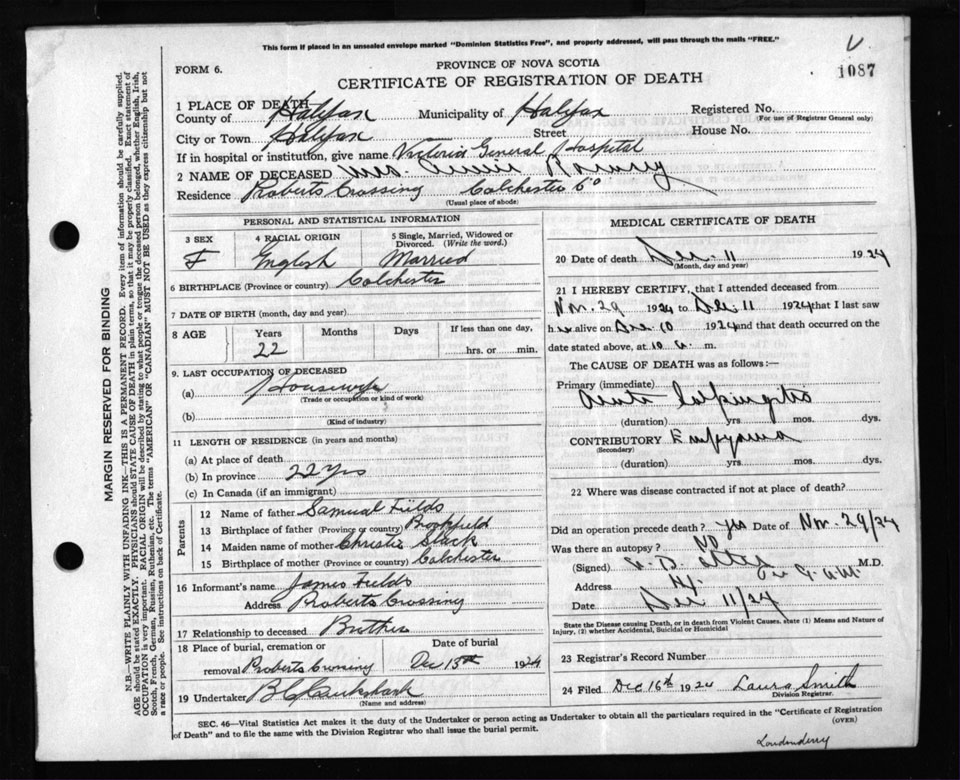 This form if placed in an unsealed envelope marked "Dominion Statistics Free", and properly addressed, will pass through the mails "FREE."
1087
FORM 6.
PROVINCE OF NOVA SCOTIA
CERTIFICATE OF REGISTRATION OF DEATH
MARGIN RESERVED FOR BINDING
N.B.—WRITE PLAINLY WITH UNFADING INK—THIS IS A PERMANENT RECORD. Every item of information should be carefully supplied.
AGE should be stated EXACTLY. PHYSICIANS should STATE CAUSE OF DEATH in plain terms, so that it may be properly classified. Exact statement of
OCCUPATION is very important. RACIAL ORIGIN will be described by stating to what people or tongue the deceased person belonged, whether English, Irish,
Scotch, French, German, Russian, Ruthenian, etc. The terms "AMERICAN" OR "CANADIAN" MUST NOT BE USED as they express citizenship but not
a race or people. See instructions on back of Certificate.
1 PLACE OF DEATH
County of Halifax Municipality of Halifax Registered No.
(For use of Registrar General only)
City or Town Halifax Street House No.
If in hospital or institution, give name Victoria General Hospital
2 NAME OF DECEASED Mrs. Annie
Residence Roberts Crossing Colchester Co
(Usual place of abode)
PERSONAL AND STATISTICAL INFORMATION
3 SEX F
4 RACIAL ORIGIN English
5 Single, Married, Widowed or Divorced. (Write the word.) Married
6 BIRTHPLACE (Province or country) Colchester
7 DATE OF BIRTH (month, day and year)
8 AGE Years Months Days If less than one day,
22 hrs. or min.
9. LAST OCCUPATION OF DECEASED
(a) Housewife
(Trade or occupation or kind of work)
(b)
(Kind of industry)
11 LENGTH OF RESIDENCE (in years and months)
(a) At place of death
(b) In province 22 yrs
(c) In Canada (if an immigrant)
Parents
12 Name of father Samual Fields
13 Birthplace of father (Province or country) Brookfield
14 Maiden name of mother Christie Slack
15 Birthplace of mother (Province or country) Colchester
16 Informant's name James Fields
Address Roberts Crossing
17 Relationship to deceased Brother
18 Place of burial, cremation or Date of burial
removal Roberts Crossing Dec 13th 1924
19 Undertaker
(Name and address)
MEDICAL CERTIFICATE OF DEATH
20 Date of death Dec. 11 1924
(Month, day and year)
21 I HEREBY CERTIFY, that I attended deceased from
Nov. 29 1924 to Dec 11 1924 that I last saw
her alive on Dec 10 1924 and that death occurred on the
date stated above, at 10 a. m.
The CAUSE OF DEATH was as follows:—
Primary (immediate)
Acute Salpingitis
(duration) yrs mos. dys.
CONTRIBUTORY Empyema
(Secondary)
(duration) yrs. mos. dys.
22 Where was disease contracted if not at place of death?
Did an operation precede death? yes Date of Nov. 29/24
Was there an autopsy? NO
(Signed) M.D.
Address
Date Dec 11/24
State the Disease causing Death, or in death from Violent Causes, state (1) Means and Nature of
Injury, (2) whether Accidental, Suicidal or Homicidal
23 Registrar's Record Number
24 Filed Dec 16th 1924 Laura Smith
Division Registrar.
SEC. 46—Vital Statistics Act makes it the duty of the Undertaker or person acting as Undertaker to obtain all the particulars required in the "Certificate of Registration
of Death" and to file the same with the Division Registrar who shall issue the burial permit. (OVER)
Londonderry